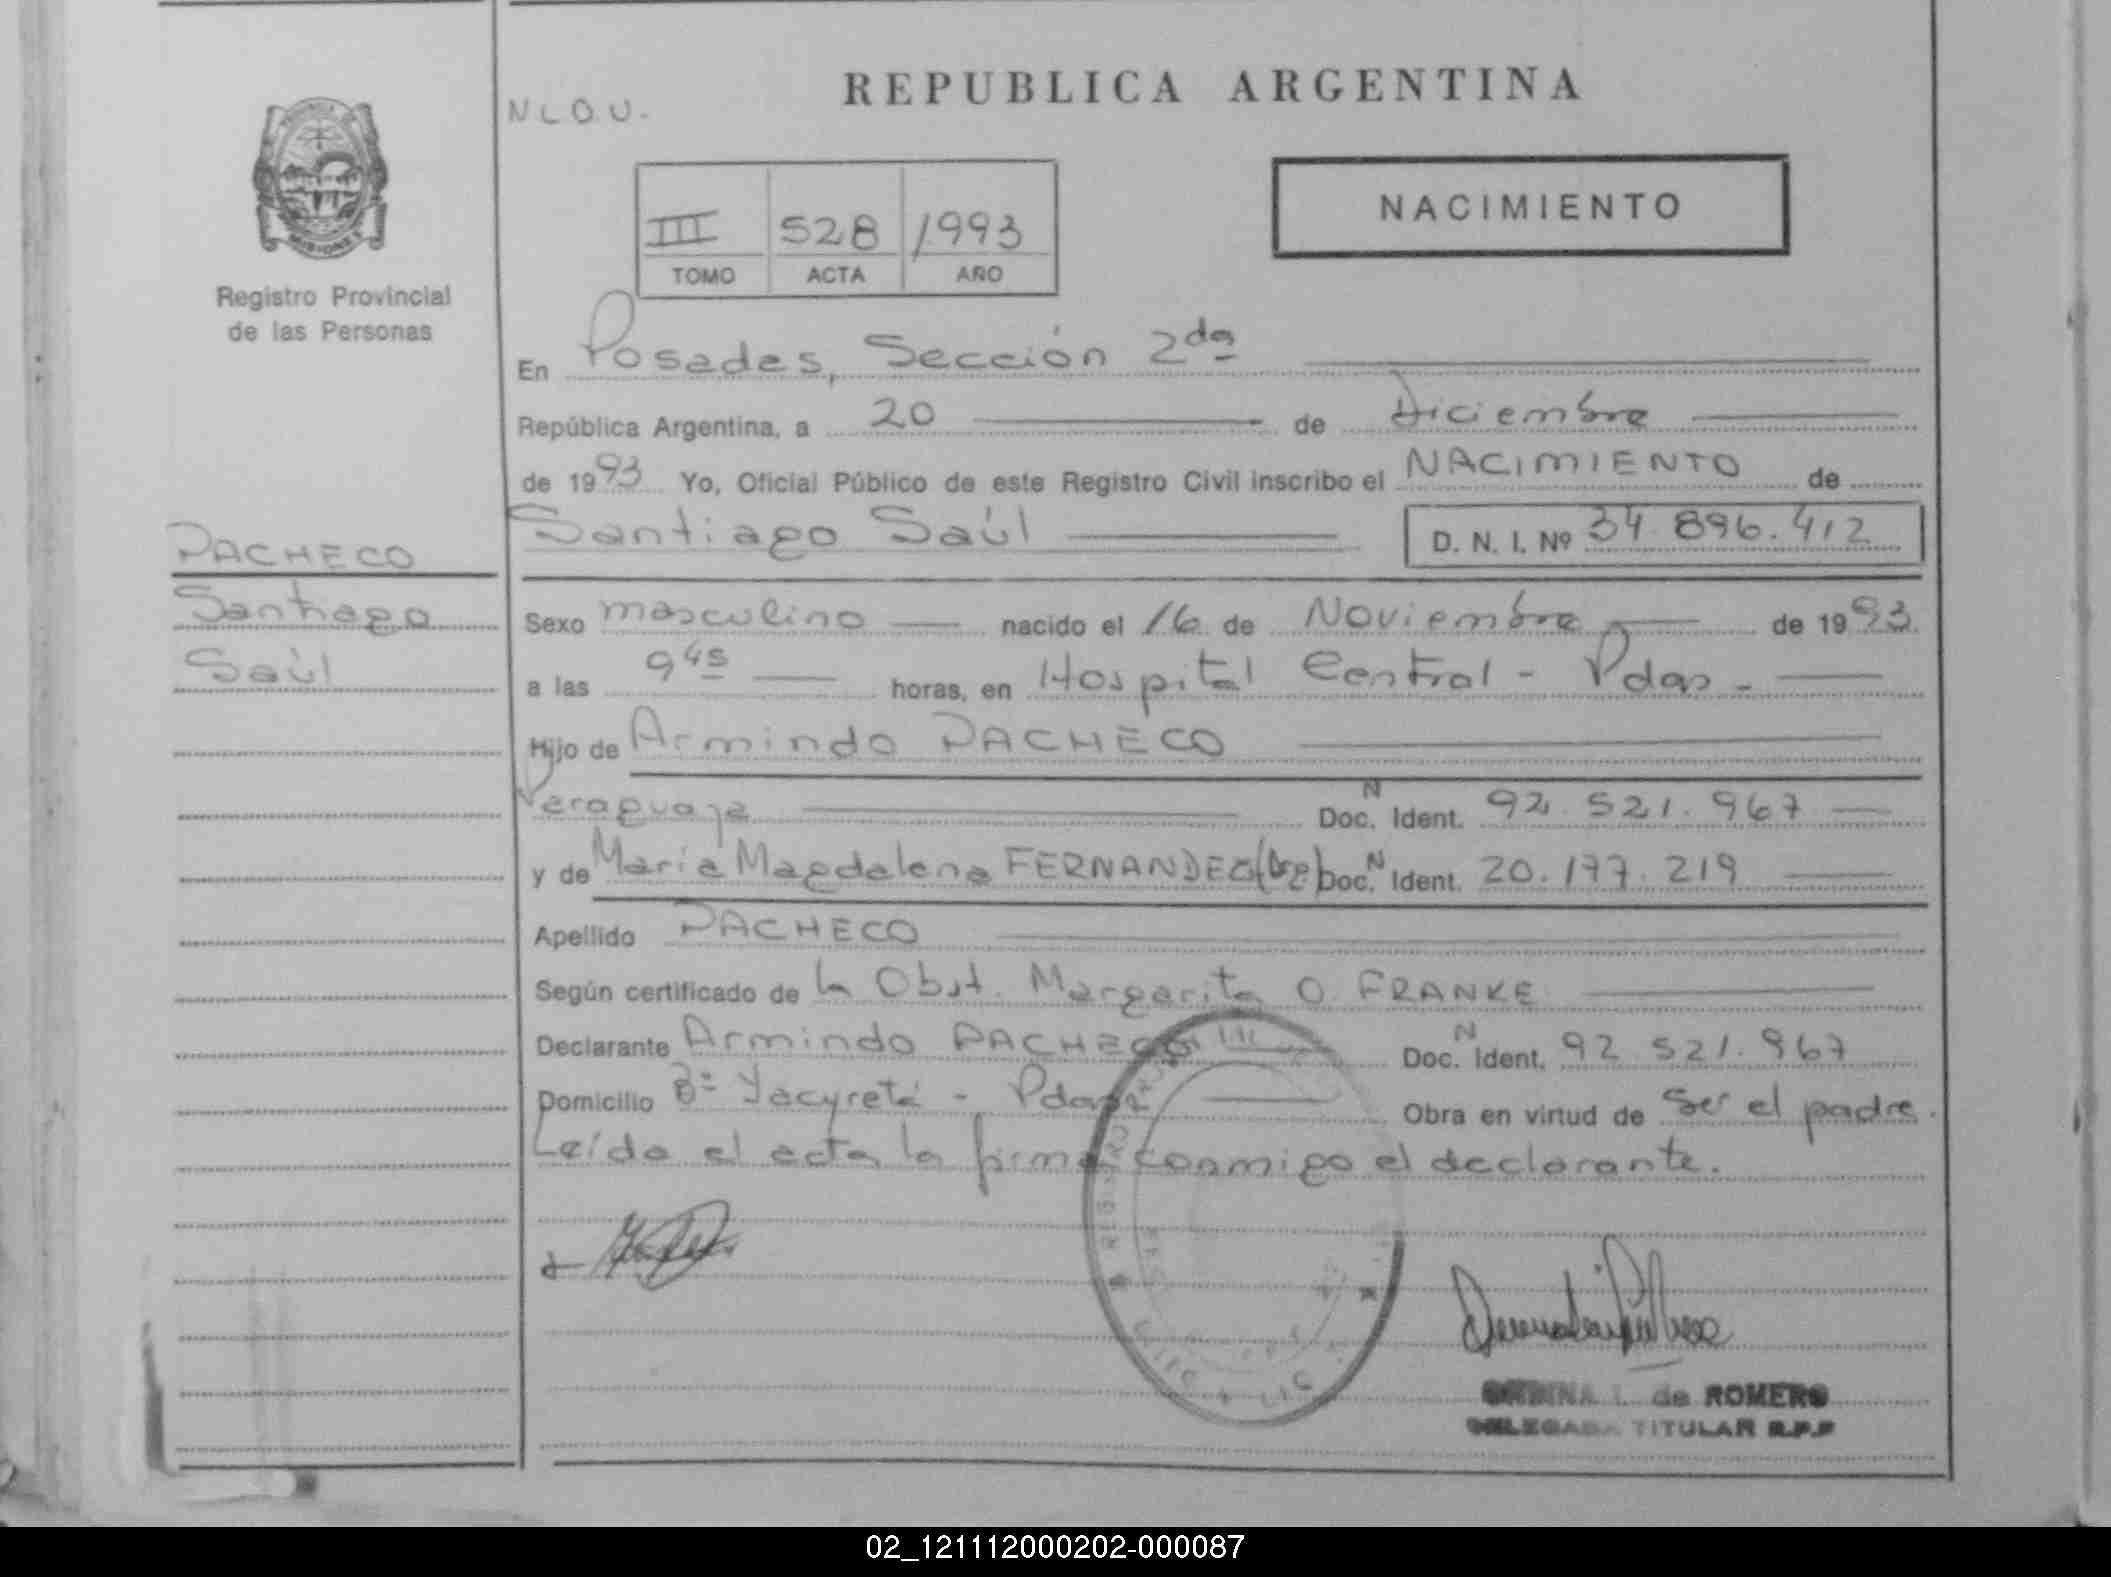 REPUBLICA ARGENTINA
N L O. U.
NACIMIENTO
III 528 1993
TOMO ACTA AÑO
MISIONES
Registro Provincial
de las Personas
En Posadas, Sección 2da
República Argentina, a 20 de Diciembre
de 1993 Yo, Oficial Público de este Registro Civil inscribo el NACIMIENTO de
Santiago Saúl D. N. I. Nº 34.896.412
PACHECO
Santiago
Saúl
Sexo masculino nacido el 16 de Noviembre de 1993.
a las 9 45 horas, en Hospital Central - Pdas -
Hijo de Armindo PACHECO
Paraguaya Doc. N Ident. 92.521.967
y de María Magdalena FERNANDEZ Doc. N Ident. 20.177.219
Apellido PACHECO
Según certificado de la Obst. Margarita O. FRANKE
Declarante Armindo PACHECO Doc. N Ident. 92.521.967
Domicilio Bº Yacyretá - Pdas Obra en virtud de ser el padre.
Leída el acta la firma conmigo el declarante.
L. de ROMERO
DELEGADA TITULAR R.P.P
02_121112000202-000087